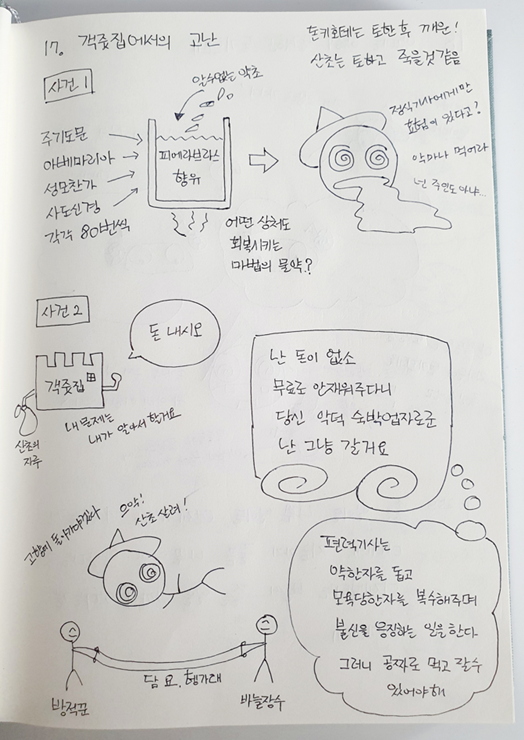 17. 객줏집에서의 고난
돈키호테는 토한 후 개운!
산초는 토하고 죽을것 같음
사건 1
알수없는 약초
주기도문
아베마리아
성모찬가
사도신경
각각 80번씩
피에라브라스
향유
어떤 상처도
회복시키는
마법의 물약?
정식기사에게만
효험이 있다고?
악마나 먹어라
넌 주인도 아냐...
사건 2
돈 내시오
객줏집
산초의
자루
내 문제는
내가 알아서 할거요
난 돈이 없소
무료로 안재워주다니
당신 악덕 숙박업자로군
난 그냥 갈거요
고향에 돌아가야겠다
으악!
산초 살려!
담요 헹가래
방적꾼
바늘장수
편력기사는
약한자를 돕고
모욕당한자를 복수해주며
불신을 응징하는 일을 한다
그러니 공짜로 먹고 잘수
있어야해